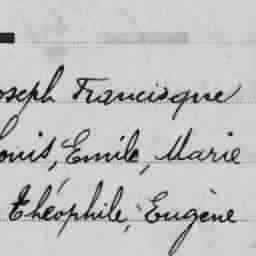 oseph Francisque
ouis, Emile, Marie
Théophile, Eugène